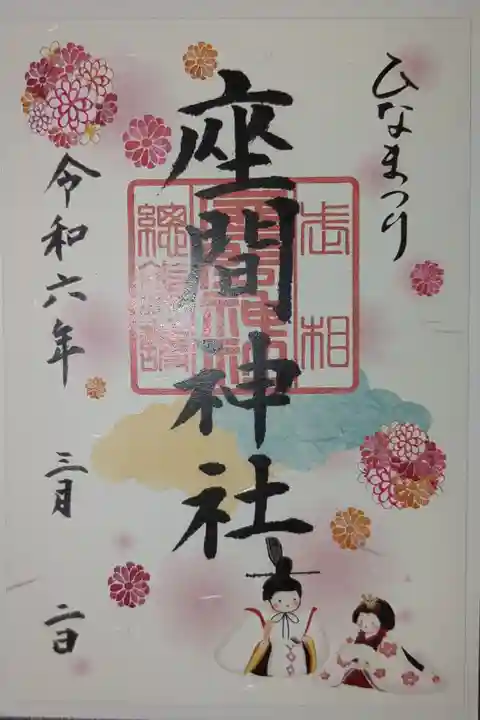 ひなまつり
武相
座間神社
座間神社
總鎮護
令和六年 三月 二日